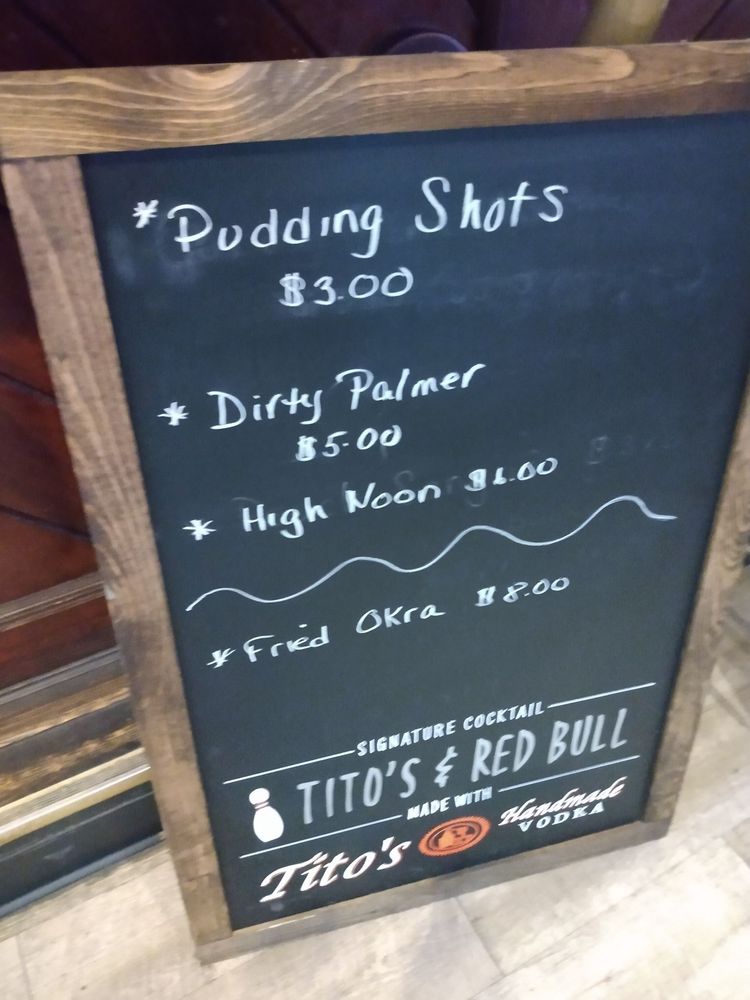 *Pudding Shots
$3.00
* Dirty Palmer
$5.00
* High Noon $6.00
*Fried Okra $8.00
SIGNATURE COCKTAIL
TITO'S & RED BULL
MADE WITH
Tito's Handmade
VODKA